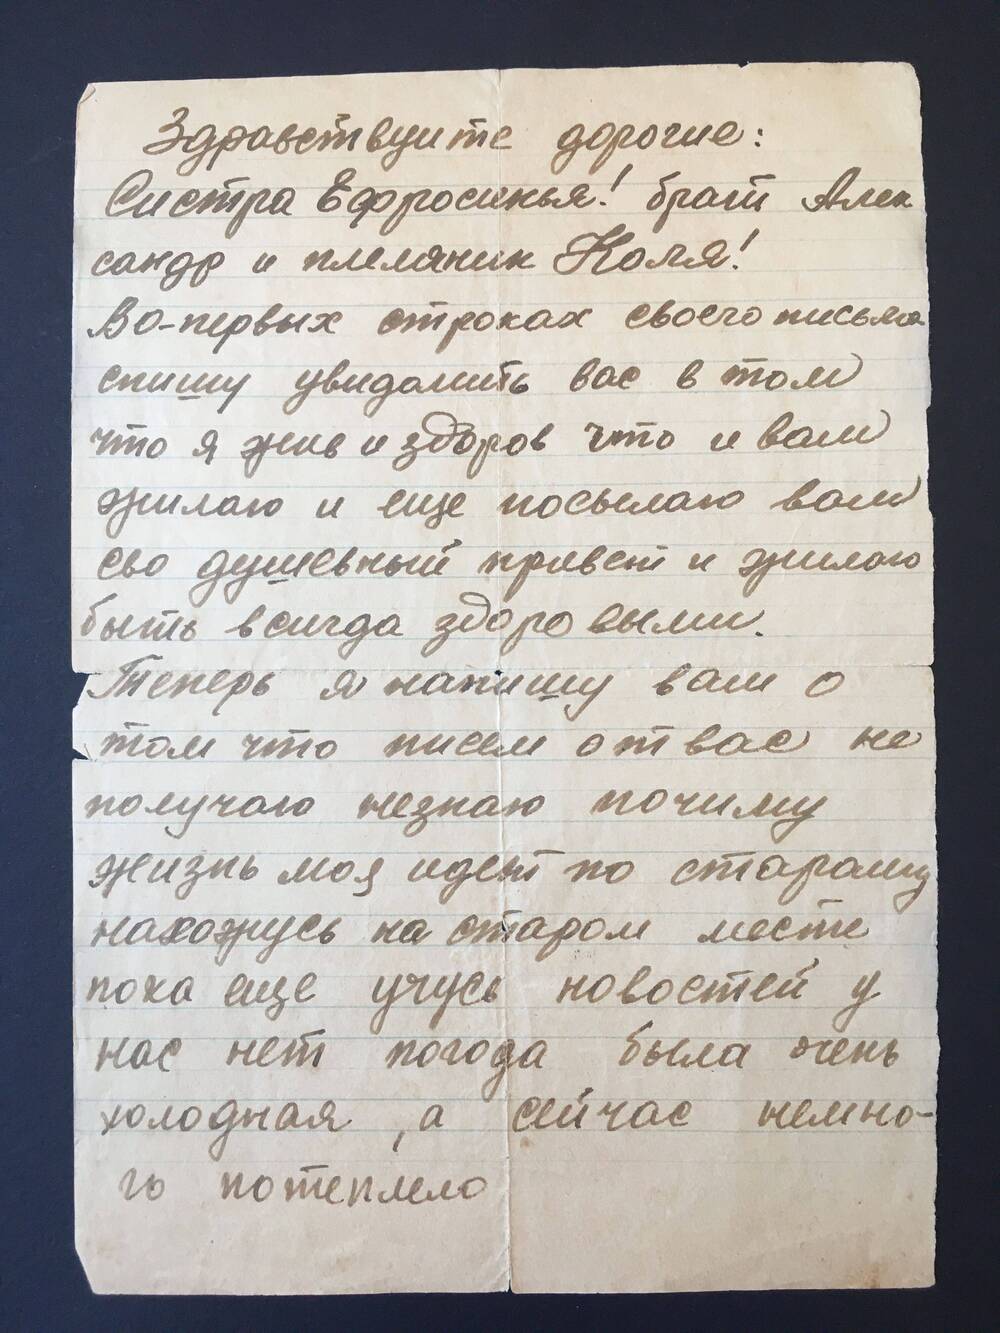 Здравствуите дорогие:
Систра Ефросинья! брат Алек
сандр и плеляник Коля!
Во-первых строках своего письма
спишу увидомить вас в том
что я жив и здоров что и вам
жилаю и еще посылаю вам
сво душевный привет и жилаю
быть всигда здоровыми.
Теперь я напишу вам о
том что писем от вас не
получаю незнаю почиму
жизнь моя идет по старому
нахожусь на старом месте
пока еще учусь новостей у
нас нет погода была очень
холодная, а сейчас немно-
го потеплело